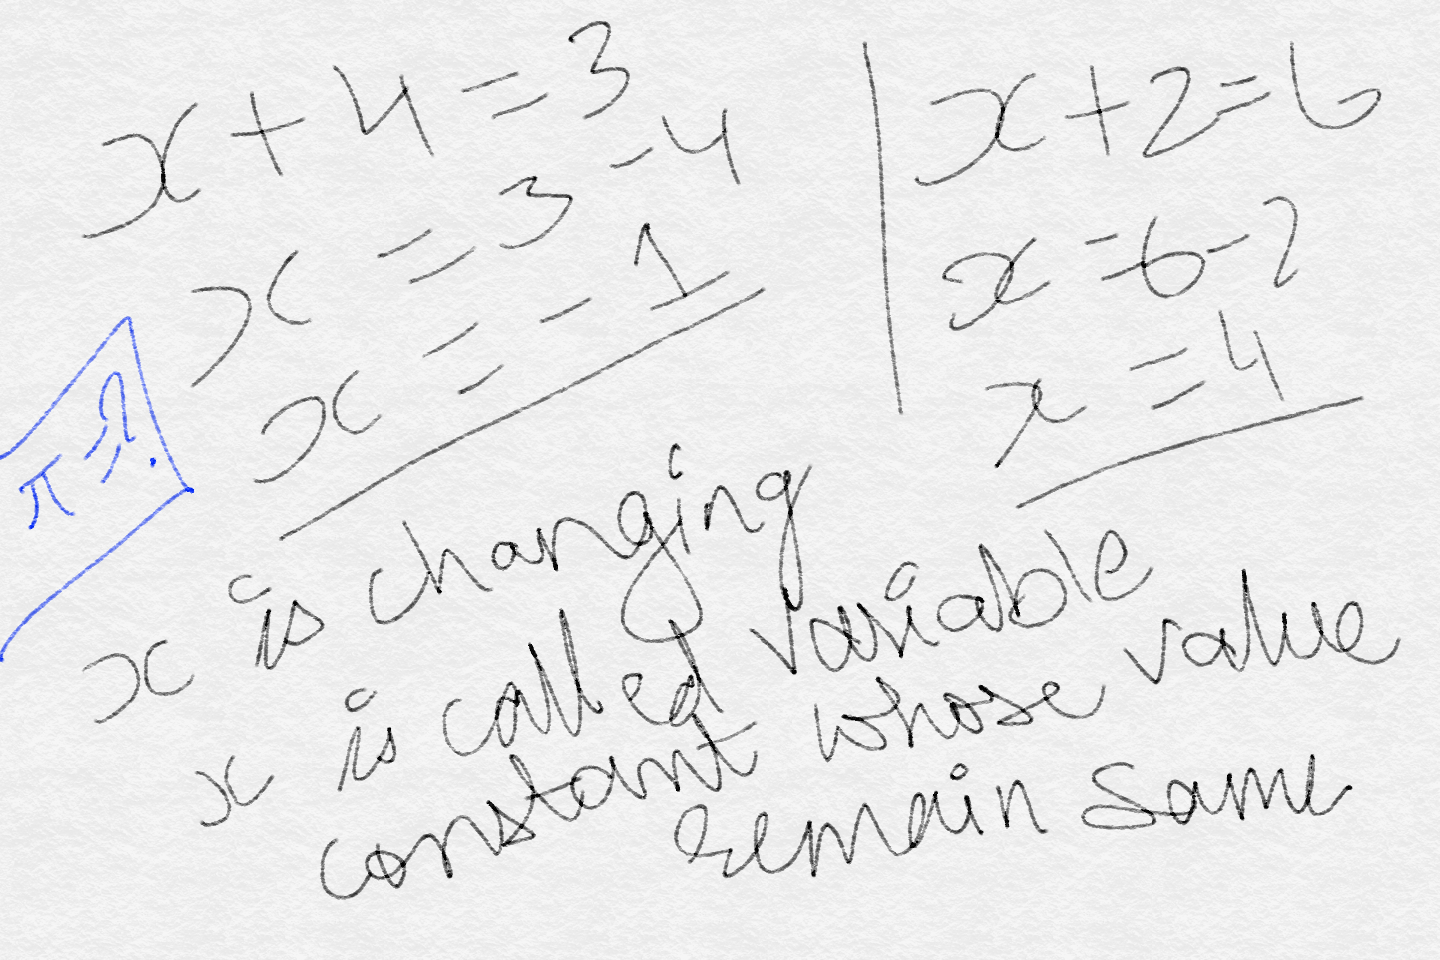 x + 4 = 3
x = 3 - 4
x = - 1
x + 2 = 6
x = 6 - 2
x = 4
π = ?
x is changing
x is called variable
constant whose value
remain same